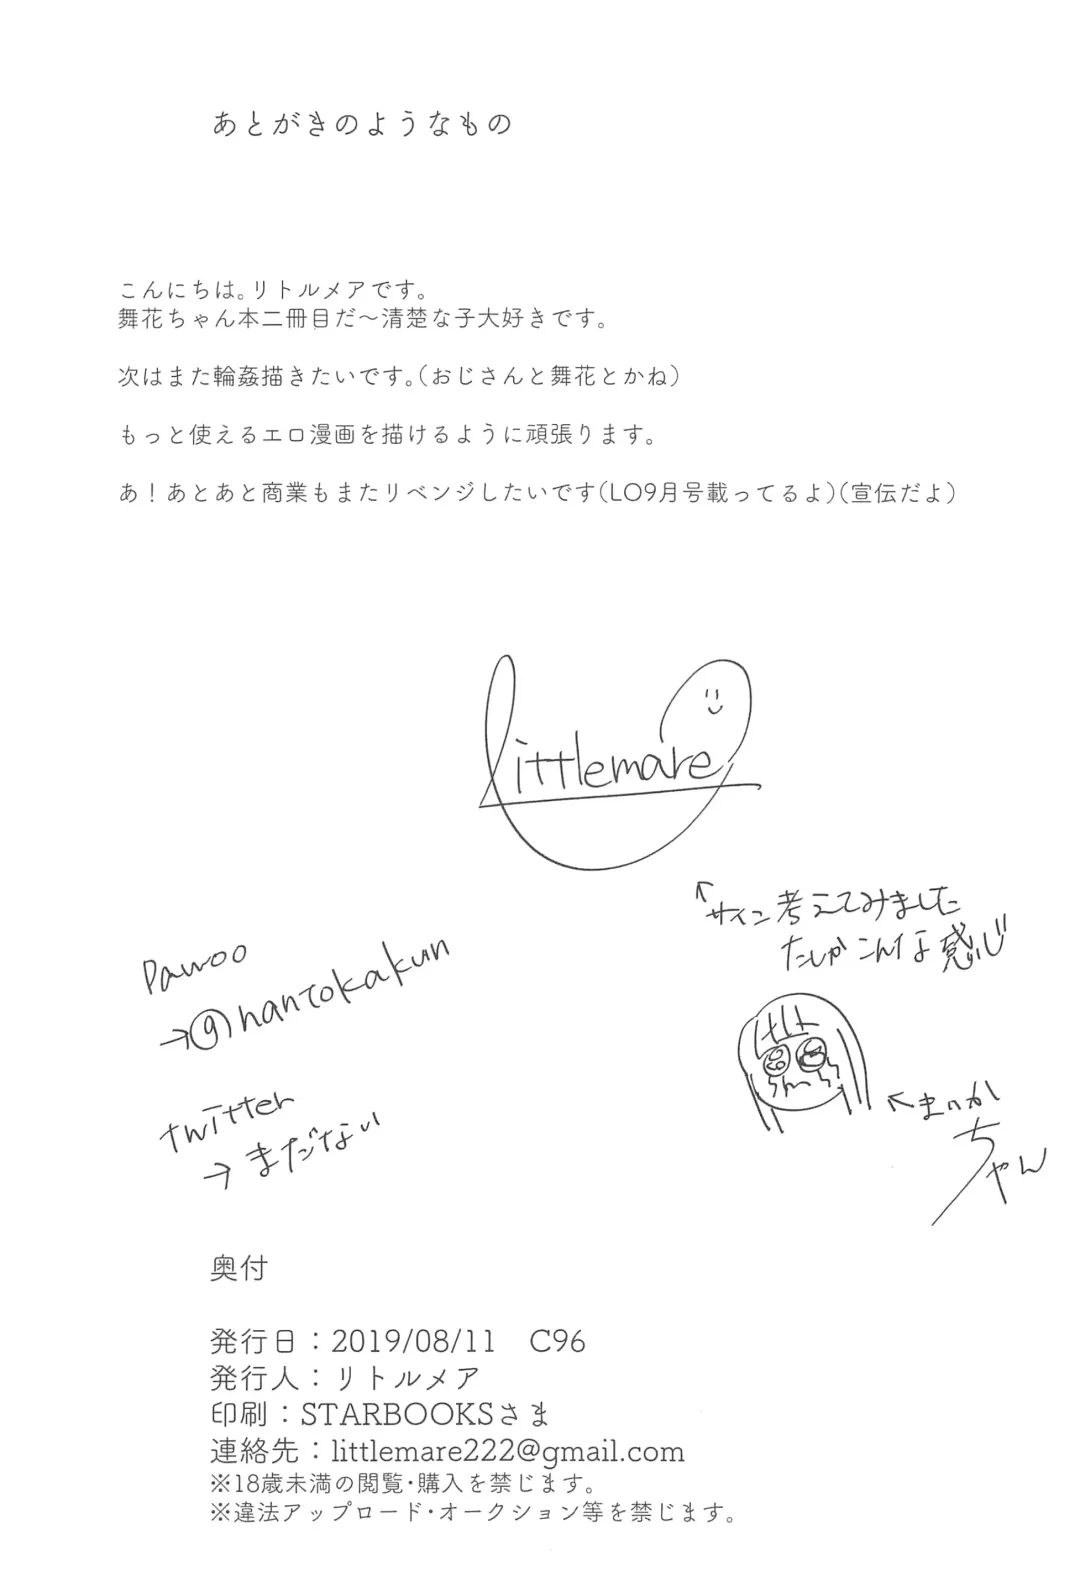 あとがきのようなもの
こんにちは。リトルメアです。
舞花ちゃん本二冊目だ～清楚な子大好きです。
次はまた輪姦描きたいです。（おじさんと舞花とかね）
もっと使えるエロ漫画を描けるように頑張ります。
あ！あとあと商業もまたリベンジしたいです（LO9月号載ってるよ）（宣伝だよ）
littlemare
↑サイン考えてみました
たしかこんな感じ
pawoo
→@hantokakun
twitter
→まだない
←まいか
ちゃん
奥付
発行日：2019/08/11　C96
発行人：リトルメア
印刷：STARBOOKSさま
連絡先：littlemare222@gmail.com
※18歳未満の閲覧・購入を禁じます。
※違法アップロード・オークション等を禁じます。